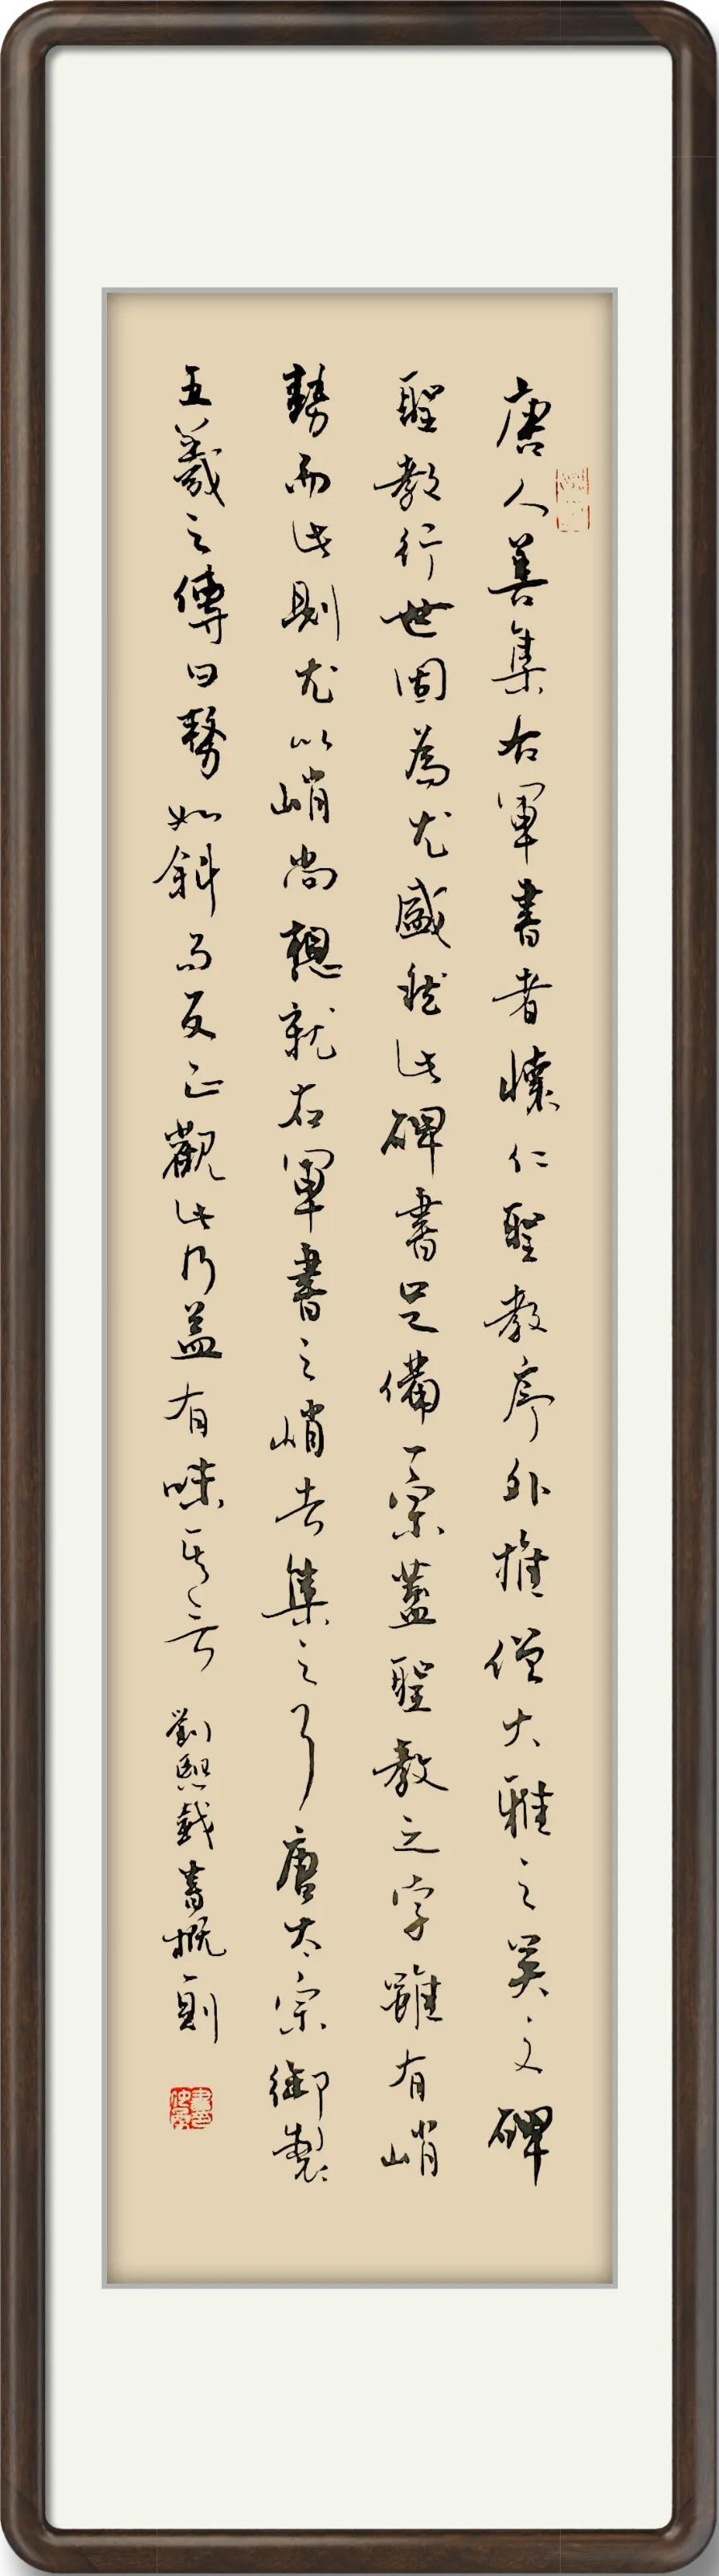 唐人善集右軍書者懷仁聖教序外推僧大雅之吳文碑
聖教行世固為尤盛然此碑書足備一宗蓋聖教之字雖有峭
勢而此則尤以峭尚想就右軍書之峭者集之耳唐太宗御製
王羲之傳曰勢如斜而反正觀此乃益有味其言
劉熙載書概一則